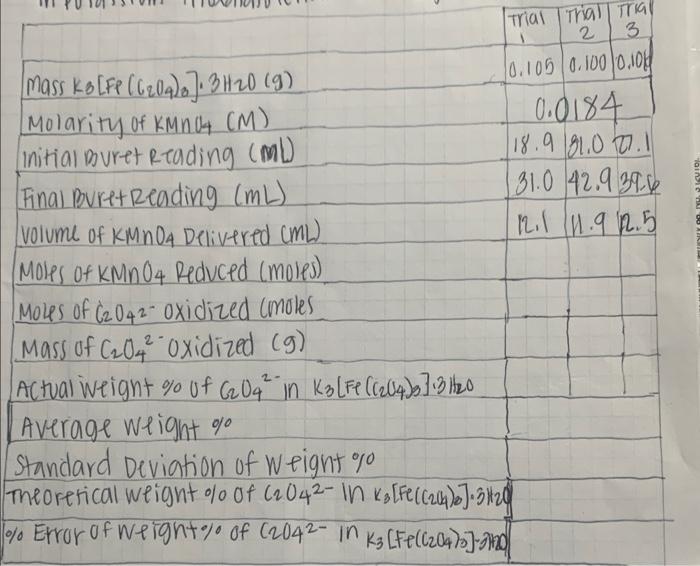 Trial 1 Trial 2 Trial 3
Mass K3[Fe(C2O4)3]·3H2O (g) 0.105 0.100
Molarity of KMnO4 (M) 0.0184
Initial Buret Reading (mL) 18.9 31.0 27.1
Final Buret Reading (mL) 31.0 42.9 39.6
Volume of KMnO4 Delivered (mL) 12.1 11.9 12.5
Moles of KMnO4 Reduced (moles)
Moles of C2O4 2- oxidized (moles
Mass of C2O4 2- oxidized (g)
Actual weight % of C2O4 2- in K3[Fe(C2O4)3]·3H2O
Average weight %
Standard Deviation of weight %
Theoretical weight % of C2O4 2- in K3[Fe(C2O4)3]·3H2O
% Error of weight % of C2O4 2- in K3[Fe(C2O4)3]·3H2O